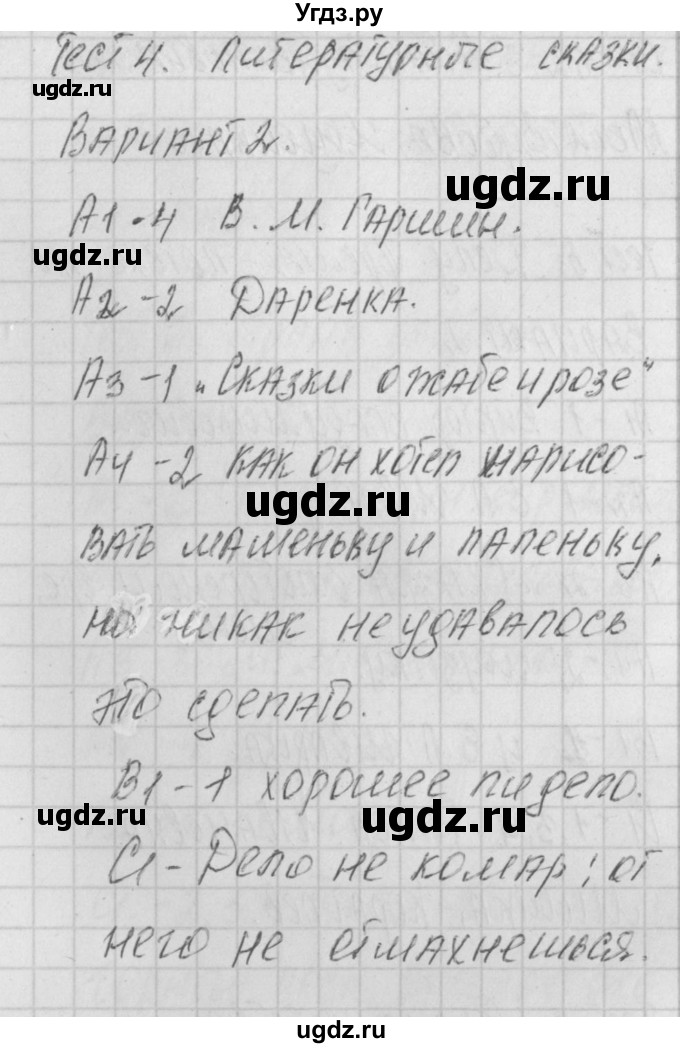 Угдз.ру
Тест 4. Литературные сказки.
ugdz.ru
Вариант 2.
ugdz.ru
А1-4 В. М. Гаршин.
ugdz.ru
А2-2 Даренка.
ugdz.ru
А3-1 „Сказки о жабе и розе"
А4-2 как он хотел нарисо-
ugdz.ru
вать маменьку и папеньку,
но никак не удавалось
ugdz.ru
это сделать.
В1-1 хорошее ли дело.
ugdz.ru
ugdz.ru
С1-Дело не комар; от
него не отмахнешься.
ugdz.ru
ugdz.ru